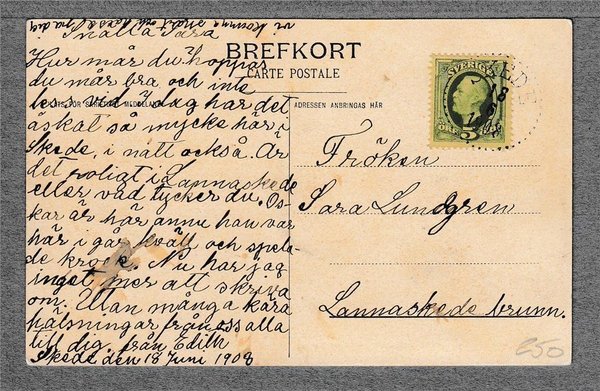 vi komma snart och hälsa på dig
Snälla Sara
Hur mår du hoppas
du mår bra och inte
I dag har det
åskat så mycke här i
Skede, i natt också. Är
det roligt i Lannaskede
eller vad tycker du. Os-
kar är här ännu han var
här i går kväll och spela-
de krock. Nu har jag
inget mer att skriva
om. Utan många kära
hälsningar från oss alla
till dig, från Edith
Skede den 18 Juni 1908
BREFKORT
CARTE POSTALE
ADRESSEN ANBRINGAS HÄR
SVERIGE
5
ÖRE
SKEDE
18
Fröken
Sara Lundgren
Lannaskede brunn.
250